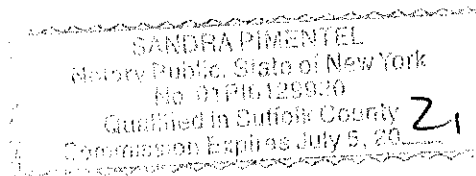 SANDRA PIMENTEL
Notary Public, State of New York
No. 01PI6129920
Qualified in Suffolk County
Commission Expires July 5, 2021